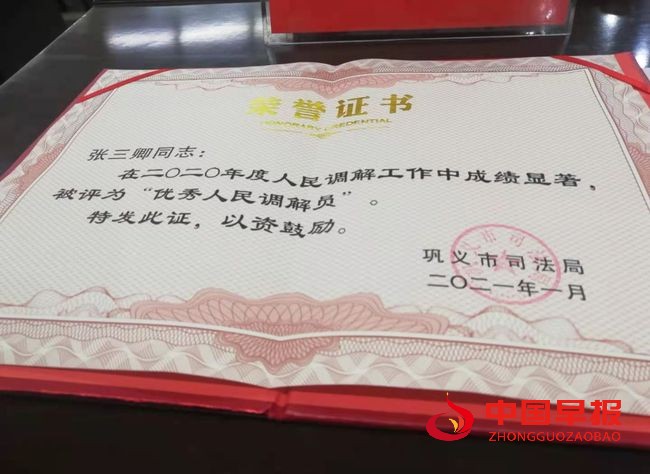 荣誉证书
HONORARY CREDENTIAL
张三卿同志：
在二〇二〇年度人民调解工作中成绩显著，
被评为“优秀人民调解员”。
特发此证，以资鼓励。
巩义市司法局
二〇二一年一月
中国早报
ZHONGGUOZAOBAO